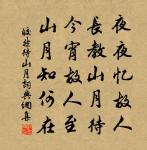 夜夜忆故人
長教山月待
今宵故人至
山月知何在
皎然待山月詞典網集